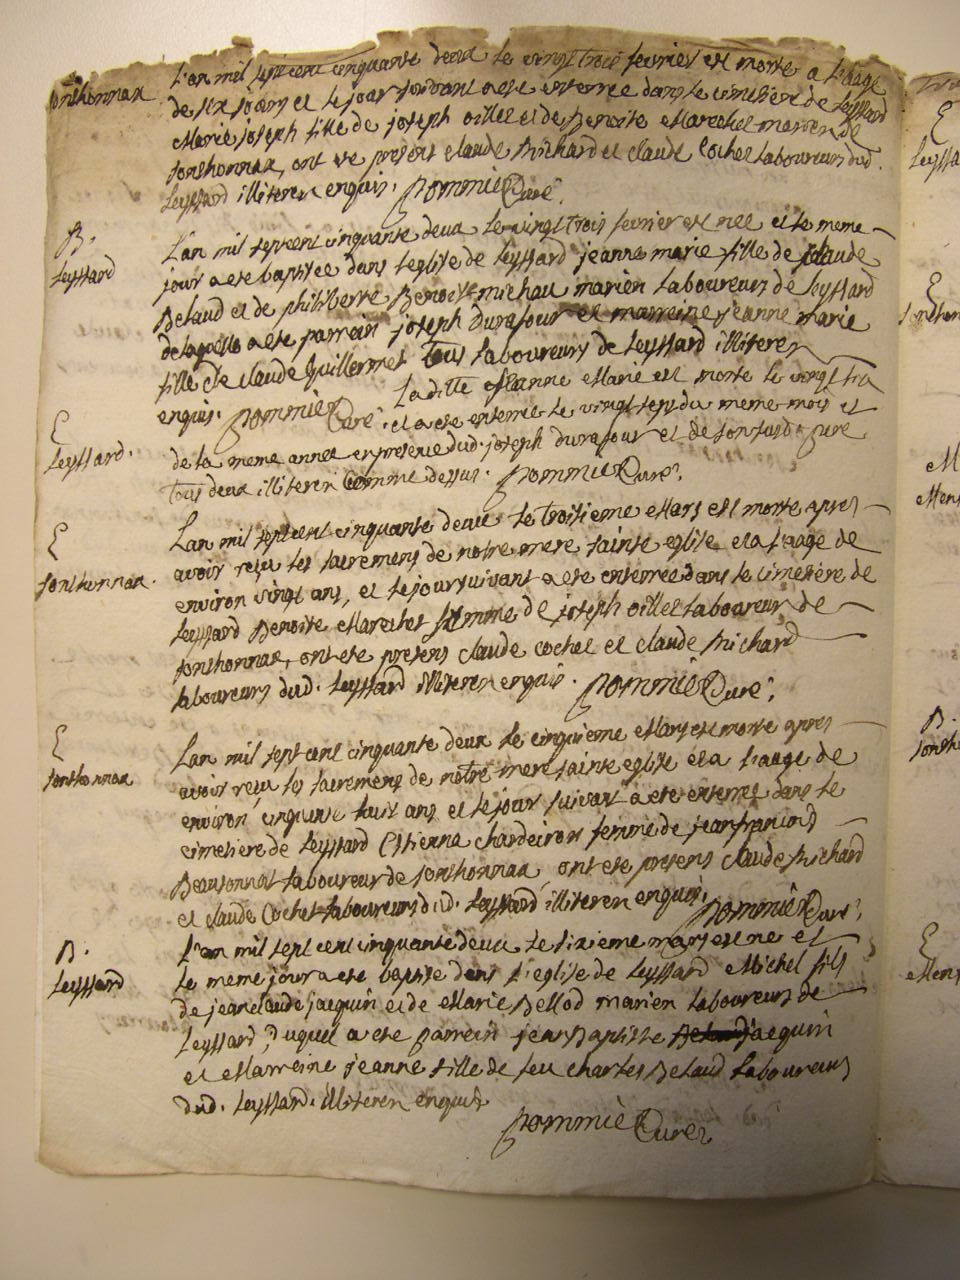 L'an mil sept cent cinquante deux le vingt trois fevrier est morte a l'aage
Sonthonnax
de six jours et le jour suivant a ete enterrée dans le cimetiere de Leyssard
Marie joseph fille de joseph oillet et de Benoite Marechet mariés de
Sonthonnax, ont ete presens claude Michard et claude Cochet laboureurs dud.
Leyssard illiteres enquis. Pommié Curé.
B.
Leyssard
L'an mil sept cent cinquante deux le vingt trois fevrier est née et le meme
jour a ete baptisée dans l'eglise de Leyssard jeanne marie fille de claude
Belaud et de philiberte Benoite michau mariés laboureurs de Leyssard
de laquelle a ete parrein joseph Durafour et marreine jeanne marie
fille de claude Guillermet tous laboureurs de Leyssard illiteres
enquis. Pommié Curé.
E
Leyssard.
La ditte jeanne Marie est morte le vingt six
et a ete enterrée le vingt sept du meme mois et
de la meme année en presence dud. joseph durafour et de son susd. pere
tous deux illiteres comme dessus. Pommié Curé.
E
Sonthonnax.
L'an mil sept cent cinquante deux le troisieme Mars est morte apres
avoir reçu les sacremens de notre mere sainte eglise et a l'aage de
environ vingt ans, et le jour suivant a ete enterrée dans le cimetiere de
Leyssard Benoite Marechet femme de joseph oillet laboureur de
Sonthonnax, ont ete presens claude cochet et claude Michard
laboureurs dud. Leyssard illiteres enquis. Pommié Curé.
E
Sonthonnax
L'an mil sept cent cinquante deux le cinquieme Mars est morte apres
avoir reçu les sacremens de notre mere sainte eglise et a l'aage de
environ cinquante huit ans et le jour suivant a ete enterrée dans le
cimetiere de Leyssard Estienna chardeiron femme de jean francois
Beausonnat laboureur de Sonthonnax, ont ete presens claude Michard
et claude Cochet laboureurs dud. Leyssard, illiteres enquis. Pommié Curé.
B.
Leyssard
L'an mil sept cent cinquante deux le sixieme mars est né et
le meme jour a ete baptisé dans l'eglise de Leyssard Michel fils
de jean claude jacquin et de Marie Bellod mariés laboureurs de
Leyssard, Duquel a ete parrein jean Baptiste jacquin
et Marreine jeanne fille de feu charles Belaud laboureurs
dud. Leyssard. illiteres enquis
Pommié Curé